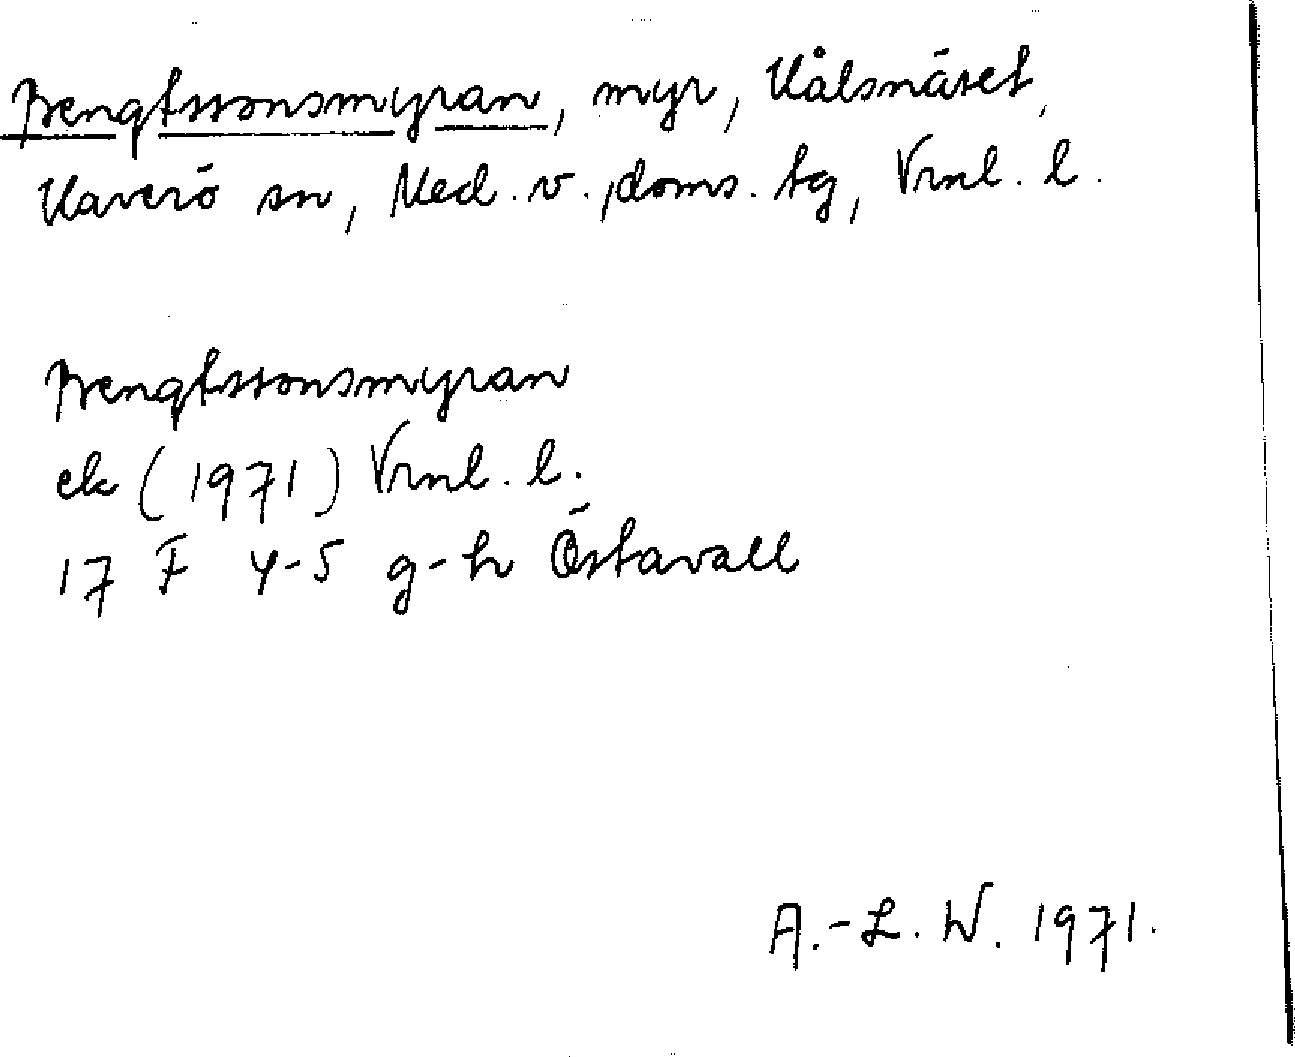 Bengtssonsmyran, myr, Kålsnäset,
Haverö sn, Med. v. doms. tg, Vrnl. l.
Bengtssonsmyran
ek (1971) Vrnl. l.
17 F 4-5 g-h Östavall
A.-L. W. 1971.